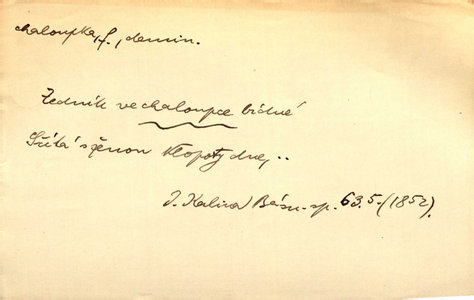 chaloupka, f., demin.
Zedník ve chaloupce bídné
Sčítá s ženou klopoty dne, ..
J. Kalina Básn. sp. 63.5. (1852).